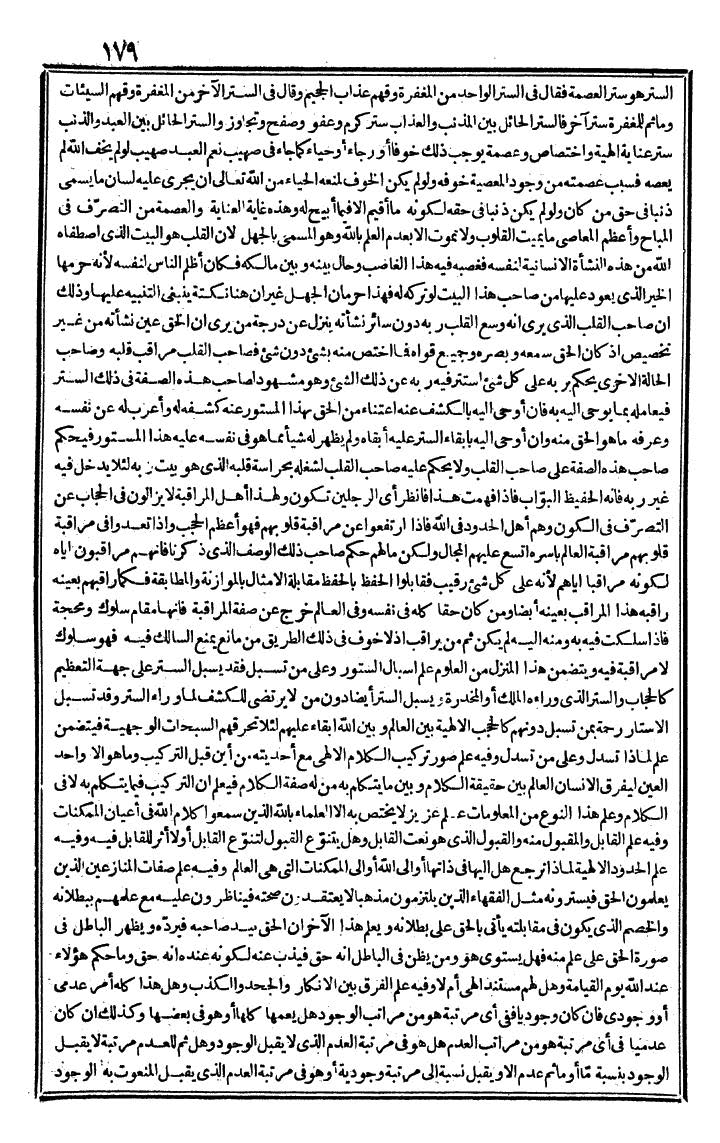 ١٧٩
الستر هو ستر العصمة فقال فى الستر الواحد من المغفرة وقهم عذاب الجحيم وقال فى الستر الآخر من المغفرة وقهم السيئات
وماثم للمغفرة ستر آخر فالستر الحائل بين المذنب والعذاب ستر كرم وعفو وصفح وتجاوز والستر الحائل بين العبد والذنب
ستر عناية الهية واختصاص وعصمة يوجب ذلك خوفا أو رجاء أو حياء كما جاء فى صهيب نعم العبد صهيب لو لم يخف الله لم
يعصه فسبب عصمته من وجود المعصية خوفه ولو لم يكن الخوف لمنعه الحياء من الله تعالى ان يجرى عليه لسان ما يسمى
ذنبا فى حق من كان ولو لم يكن ذنبا فى حقه لكونه ما أقيم الا فيما أبيح له وهذه غاية العناية والعصمة من التصرّف فى
المباح وأعظم المعاصى ما يميت القلوب ولا تموت الا بعدم العلم بالله وهو المسمى بالجهل لان القلب هو البيت الذى اصطفاه
الله من هذه النشأة الانسانية لنفسه فغصبه فيه هذا الغاصب وحال بينه وبين مالكه فكان أظلم الناس لنفسه لأنه حرمها
الخير الذى يعود عليها من صاحب هذا البيت لو تركه له فهذا حرمان الجهل غير ان هنا نكتة ينبغى التنبيه عليها وذلك
ان صاحب القلب الذى يرى انه وسع القلب ربه دون سائر نشأته ينزل عن درجة من يرى ان الحق عين نشأته من غير
تخصيص اذ كان الحق سمعه وبصره وجميع قواه فما اختص منه بشئ دون شئ فصاحب القلب مراقب قلبه وصاحب
الحالة الاخرى يحكم بربه على كل شئ استتر فيه ربه عن ذلك الشئ وهو مشهود لصاحب هذه الصفة فى ذلك الستر
فيعامله بما يوحى اليه به فان أوحى اليه بالكشف عنه اعتناء من الحق بهذا المستور عنه كشفه له وأعرب له عن نفسه
وعرفه ما هو الحق منه وان أوحى اليه بابقاء الستر عليه أبقاه ولم يظهر له شيأ مما هو فى نفسه عليه هذا المستور فيحكم
صاحب هذه الصفة على صاحب القلب ولا يحكم عليه صاحب القلب لشغله بحراسة قلبه الذى هو بيت ربه لئلا يدخل فيه
غير ربه فانه الحفيظ البوّاب فاذا فهمت هذا فانظر أى الرجلين تكون ولهذا أهل المراقبة لا يزالون فى الحجاب عن
التصرّف فى الكون وهم أهل الحدود فى الله فاذا ارتفعوا عن مراقبة قلوبهم فهو أعظم الحجب واذا تعدوا فى مراقبة
قلوبهم مراقبة العالم باسره اتسع عليهم المجال ولكن ما لهم حكم صاحب ذلك الوصف الذى ذكرنا فانهم مراقبون اياه
لكونه مراقبا اياهم لأنه على كل شئ رقيب فقابلوا الحفظ بالحفظ مقابلة الامثال بالموازنة والمطابقة فكما راقبهم بعينه
راقبه هذا المراقب بعينه أيضا ومن كان حقا كله فى نفسه وفى العالم خرج عن صفة المراقبة فانها مقام سلوك ومحجة
فاذا سلكت فيه به ومنه اليه لم يكن ثم من يراقب اذ لا خوف فى ذلك الطريق من مانع يمنع السالك فيه فهو سلوك
لا مراقبة فيه ويتضمن هذا المنزل من العلوم علم اسبال الستور وعلى من تسبل فقد يسبل الستر على جهة التعظيم
كالحجاب والستر الذى وراءه الملك أو المخدرة ويسبل الستر أيضا دون من لا يرتضى للكشف لما وراء الستر وقد تسبل
الاستار رحمة بمن تسبل دونهم كالحجب الالهية بين العالم وبين الله ابقاء عليهم لئلا تحرقهم السبحات الوجهية فيتضمن
علم لماذا تسدل وعلى من تسدل وفيه علم صور تركيب الكلام الالهى مع أحديته من أين قبل التركيب وما هو الا واحد
العين ليفرق الانسان العالم بين حقيقة الكلام وبين ما يتكلم به من له صفة الكلام فيعلم ان التركيب فيما يتكلم به لا فى
الكلام وعلم هذا النوع من المعلومات علم عزيز لا يختص به الا العلماء بالله الذين سمعوا كلام الله فى أعيان الممكنات
وفيه علم القابل والمقبول منه والقبول الذى هو نعت القابل وهل يتنوّع القبول لتنوّع القابل أو لا أثر للقابل فيه وفيه
علم الحدود الالهية لماذا ترجع هل اليها فى ذاتها أو الى الله أو الى الممكنات التى هى العالم وفيه علم صفات المنازعين الذين
يعلمون الحق فيسترونه مثل الفقهاء الذين يلتزمون مذهبا لا يعتقدون صحته فيناظرون عليه مع علمهم ببطلانه
والخصم الذى يكون فى مقابلته يأتى بالحق على بطلانه ويعلم هذا الآخر ان الحق بيد صاحبه فيردّه ويظهر الباطل فى
صورة الحق على علم منه فهل يستوى هو ومن يظن فى الباطل انه حق فيذب عنه لكونه عنده انه حق وما حكم هؤلاء
عند الله يوم القيامة وهل لهم مستند الهى أم لا وفيه علم الفرق بين الانكار والجحد والكذب وهل هذا كله أمر عدمى
أو وجودى فان كان وجوديا فنى أى مرتبة هو من مراتب الوجود هل يعمها كلها أو هو فى بعضها وكذلك ان كان
عدميا فى أى مرتبة هو من مراتب العدم هل هو فى مرتبة العدم الذى لا يقبل الوجود وهل ثم للعدم مرتبة لا يقبل
الوجود بنسبة مّا أو ماثم عدم الا ويقبل نسبة الى مرتبة وجودية أو هو فى مرتبة العدم الذى يقبل المنعوت به الوجود